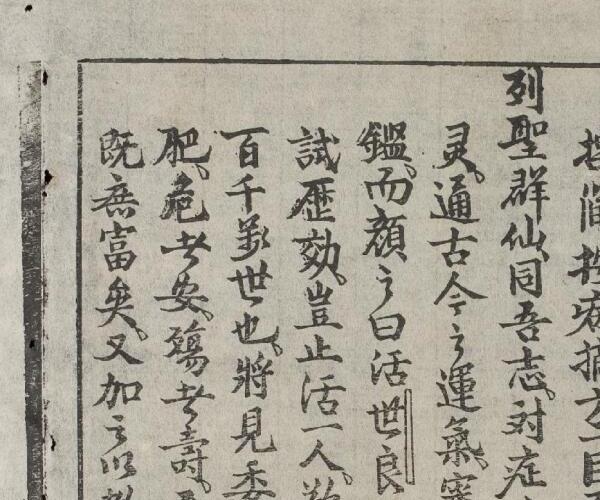 按病摘方一目
列聖群仙同吾志对症
灵通古今之運氣
鑑而顔之曰活世良
試歷効豈止活一人
百千万世也將見委
肥危者安殤者壽
既庶富矣又加之以